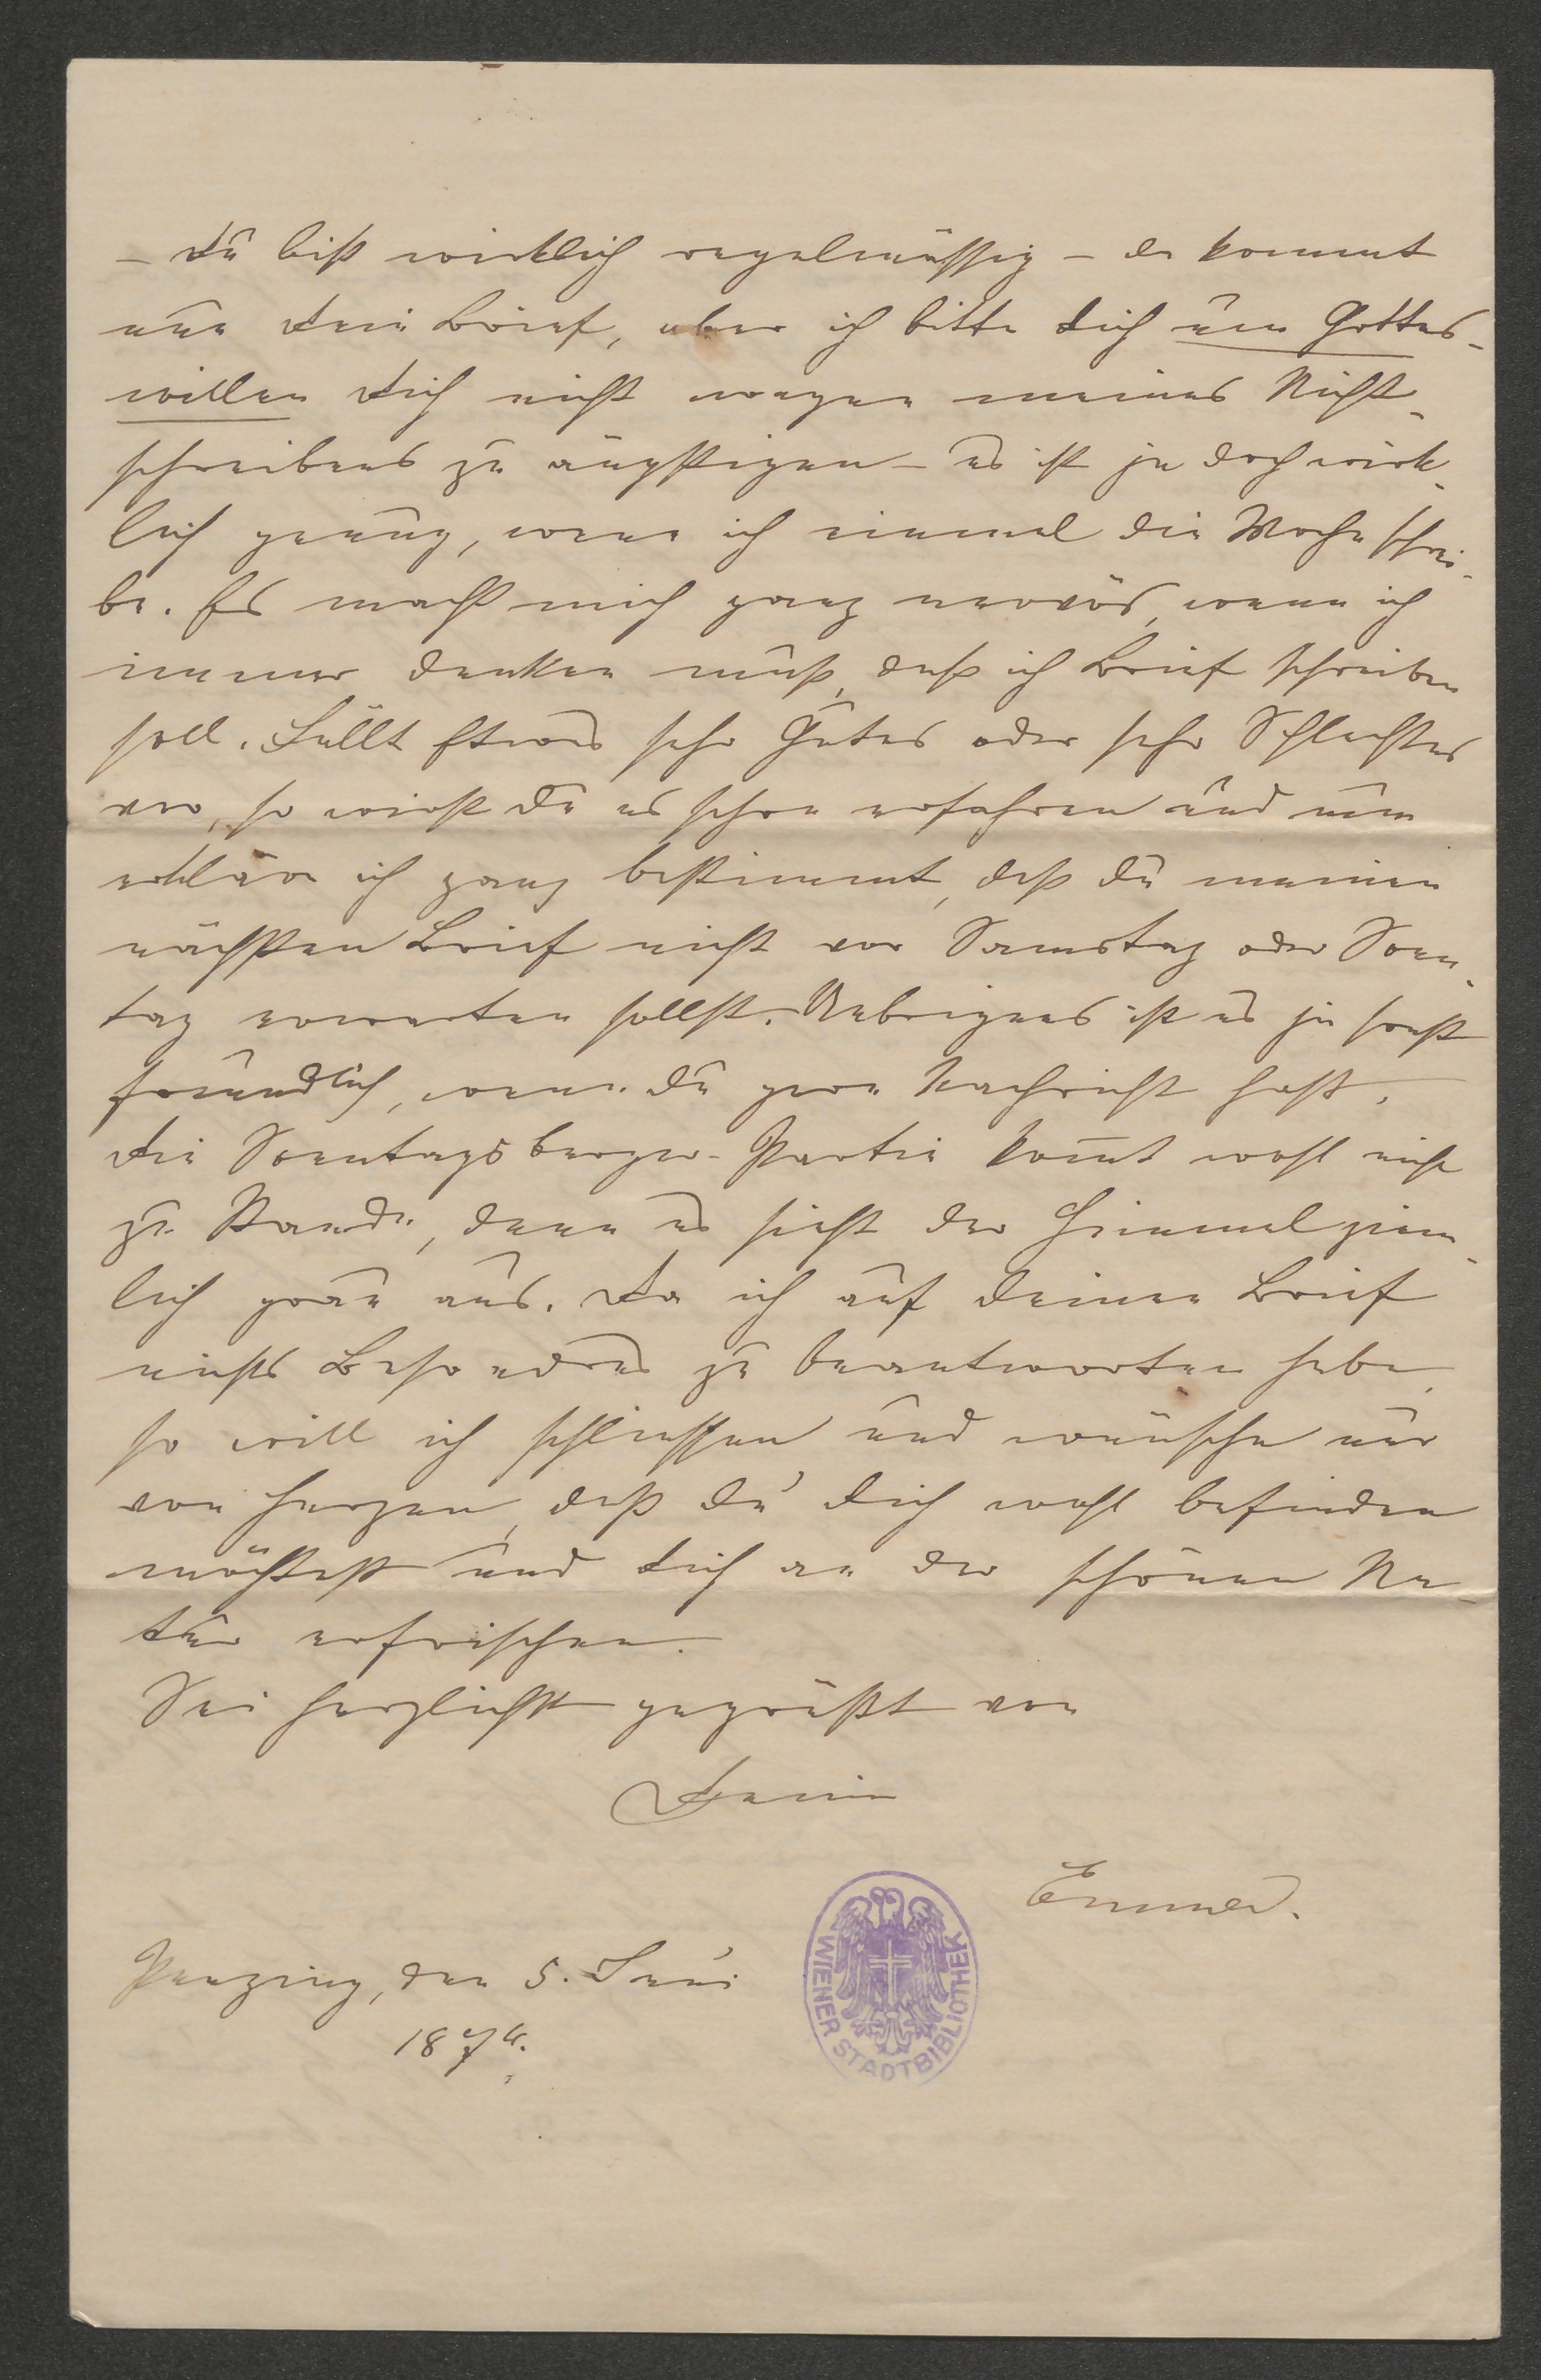 – Du bist wirklich regelmässig – da kommt
nun Dein Brief, aber ich bitte Dich um Gottes-
willen Dich nicht wegen meines Nicht-
schreibens zu ängstigen – es ist ja doch wirk-
lich genug, wenn ich einmal die Woche schrei-
be. Es macht mich ganz nervös, wenn ich
immer denken muß, daß ich Brief schreiben
soll. Fällt Etwas sehr Gutes oder sehr Schlechtes
vor, so wirst Du es schon erfahren und nun
erkläre ich ganz bestimmt, daß Du meinen
nächsten Brief nicht vor Samstag oder Sonn-
tag erwarten sollst. Uebrigens ist es ja sonst
freundlich, wenn Du gern Nachricht hast.
Die Sonntagsberger-Partie kom̅t wohl nicht
zu Stande, denn es sieht der Himmel ziem-
lich grau aus. Da ich auf Deinen Brief
nichts Besondres zu beantworten habe,
so will ich schliessen und wünsche nur
von Herzen, daß Du Dich wohl befinden
möchtest und Dich an der schönen Na-
tur erfrischen.
Sei herzlichst gegrüßt von
Deiner
Emma.
Penzing, den 5. Juni
1874.
WIENER STADTBIBLIOTHEK